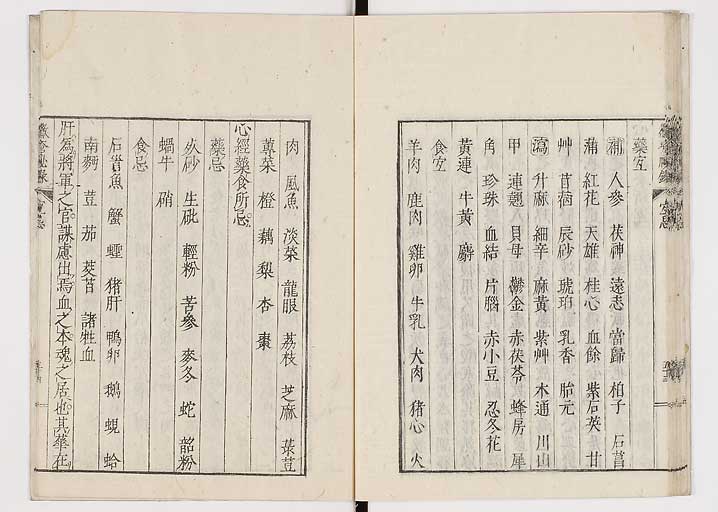 藥宜
補 人參 茯神 遠志 當歸 柏子 石菖
蒲 紅花 天雄 桂心 血餘 紫石英 甘
艸 苜蓿 辰砂 琥珀 乳香 胎元
瀉 升麻 細辛 麻黃 紫艸 木通 川山
甲 連翹 貝母 鬱金 赤茯苓 蜂房 犀
角 珍珠 血結 片腦 赤小豆 忍冬花
黃連 牛黃 麝
食宜
羊肉 鹿肉 雞卵 牛乳 犬肉 猪心 火
肉 風魚 淡菜 龍眼 荔枝 芝麻 菉荳
蓴菜 橙 藕 梨 杏 棗
心經藥食所忌
藥忌
火砂 生砒 輕粉 苦參 麥冬 蛇 韶粉
蝸牛 硝
食忌
石首魚 蟹 蟶 猪肝 鴨卵 鵝 蜆 蛤
南麪 荳 茄 茭苔 諸牲血
肝爲將軍之官謀慮出焉血之本魂之居也其華在